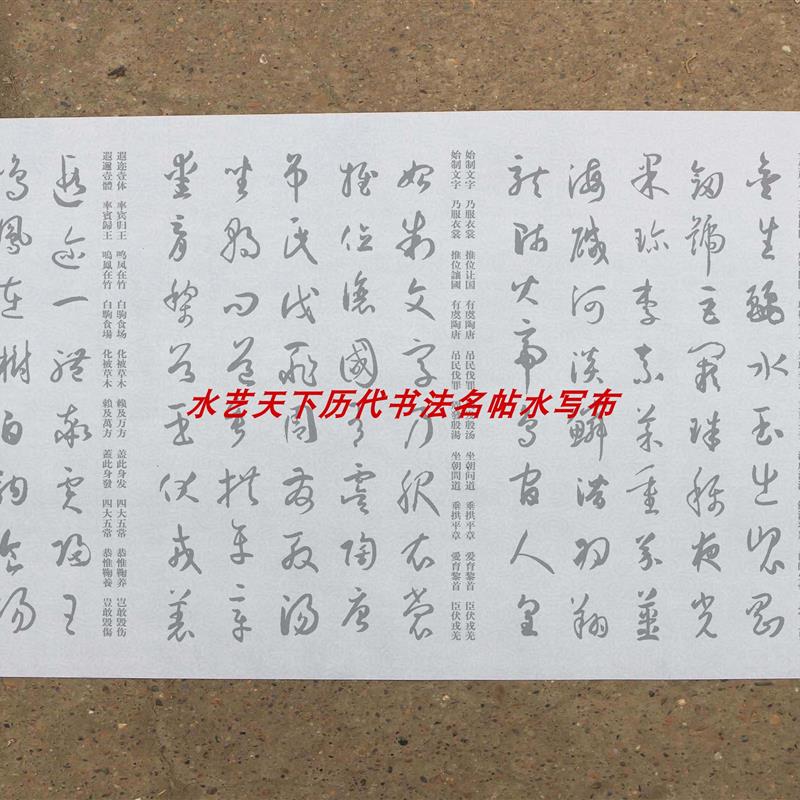 金生麗水玉出崑岡
劍號巨闕珠稱夜光
果珍李柰菜重芥薑
海鹹河淡鱗潛羽翔
龍師火帝鳥官人皇
始制文字 乃服衣裳 推位让国 有虞陶唐 吊民伐罪 殷汤 坐朝问道 垂拱平章 爱育黎首 臣伏戎羌
始制文字 乃服衣裳 推位讓國 有虞陶唐 吊民伐罪 殷湯 坐朝問道 垂拱平章 愛育黎首 臣伏戎羌
始制文字乃服衣裳
推位讓國有虞陶唐
吊民伐罪周發殷湯
坐朝問道垂拱平章
愛育黎首臣伏戎羌
遐迩壹体 率宾归王 鸣凤在竹 白驹食场 化被草木 赖及万方 盖此身发 四大五常 恭惟鞠养 岂敢毁伤
遐邇壹體 率賓歸王 鳴鳳在竹 白駒食場 化被草木 賴及萬方 蓋此身發 四大五常 恭惟鞠養 豈敢毀傷
遐邇一體率賓歸王
鳴鳳在樹白駒食場
水艺天下历代书法名帖水写布